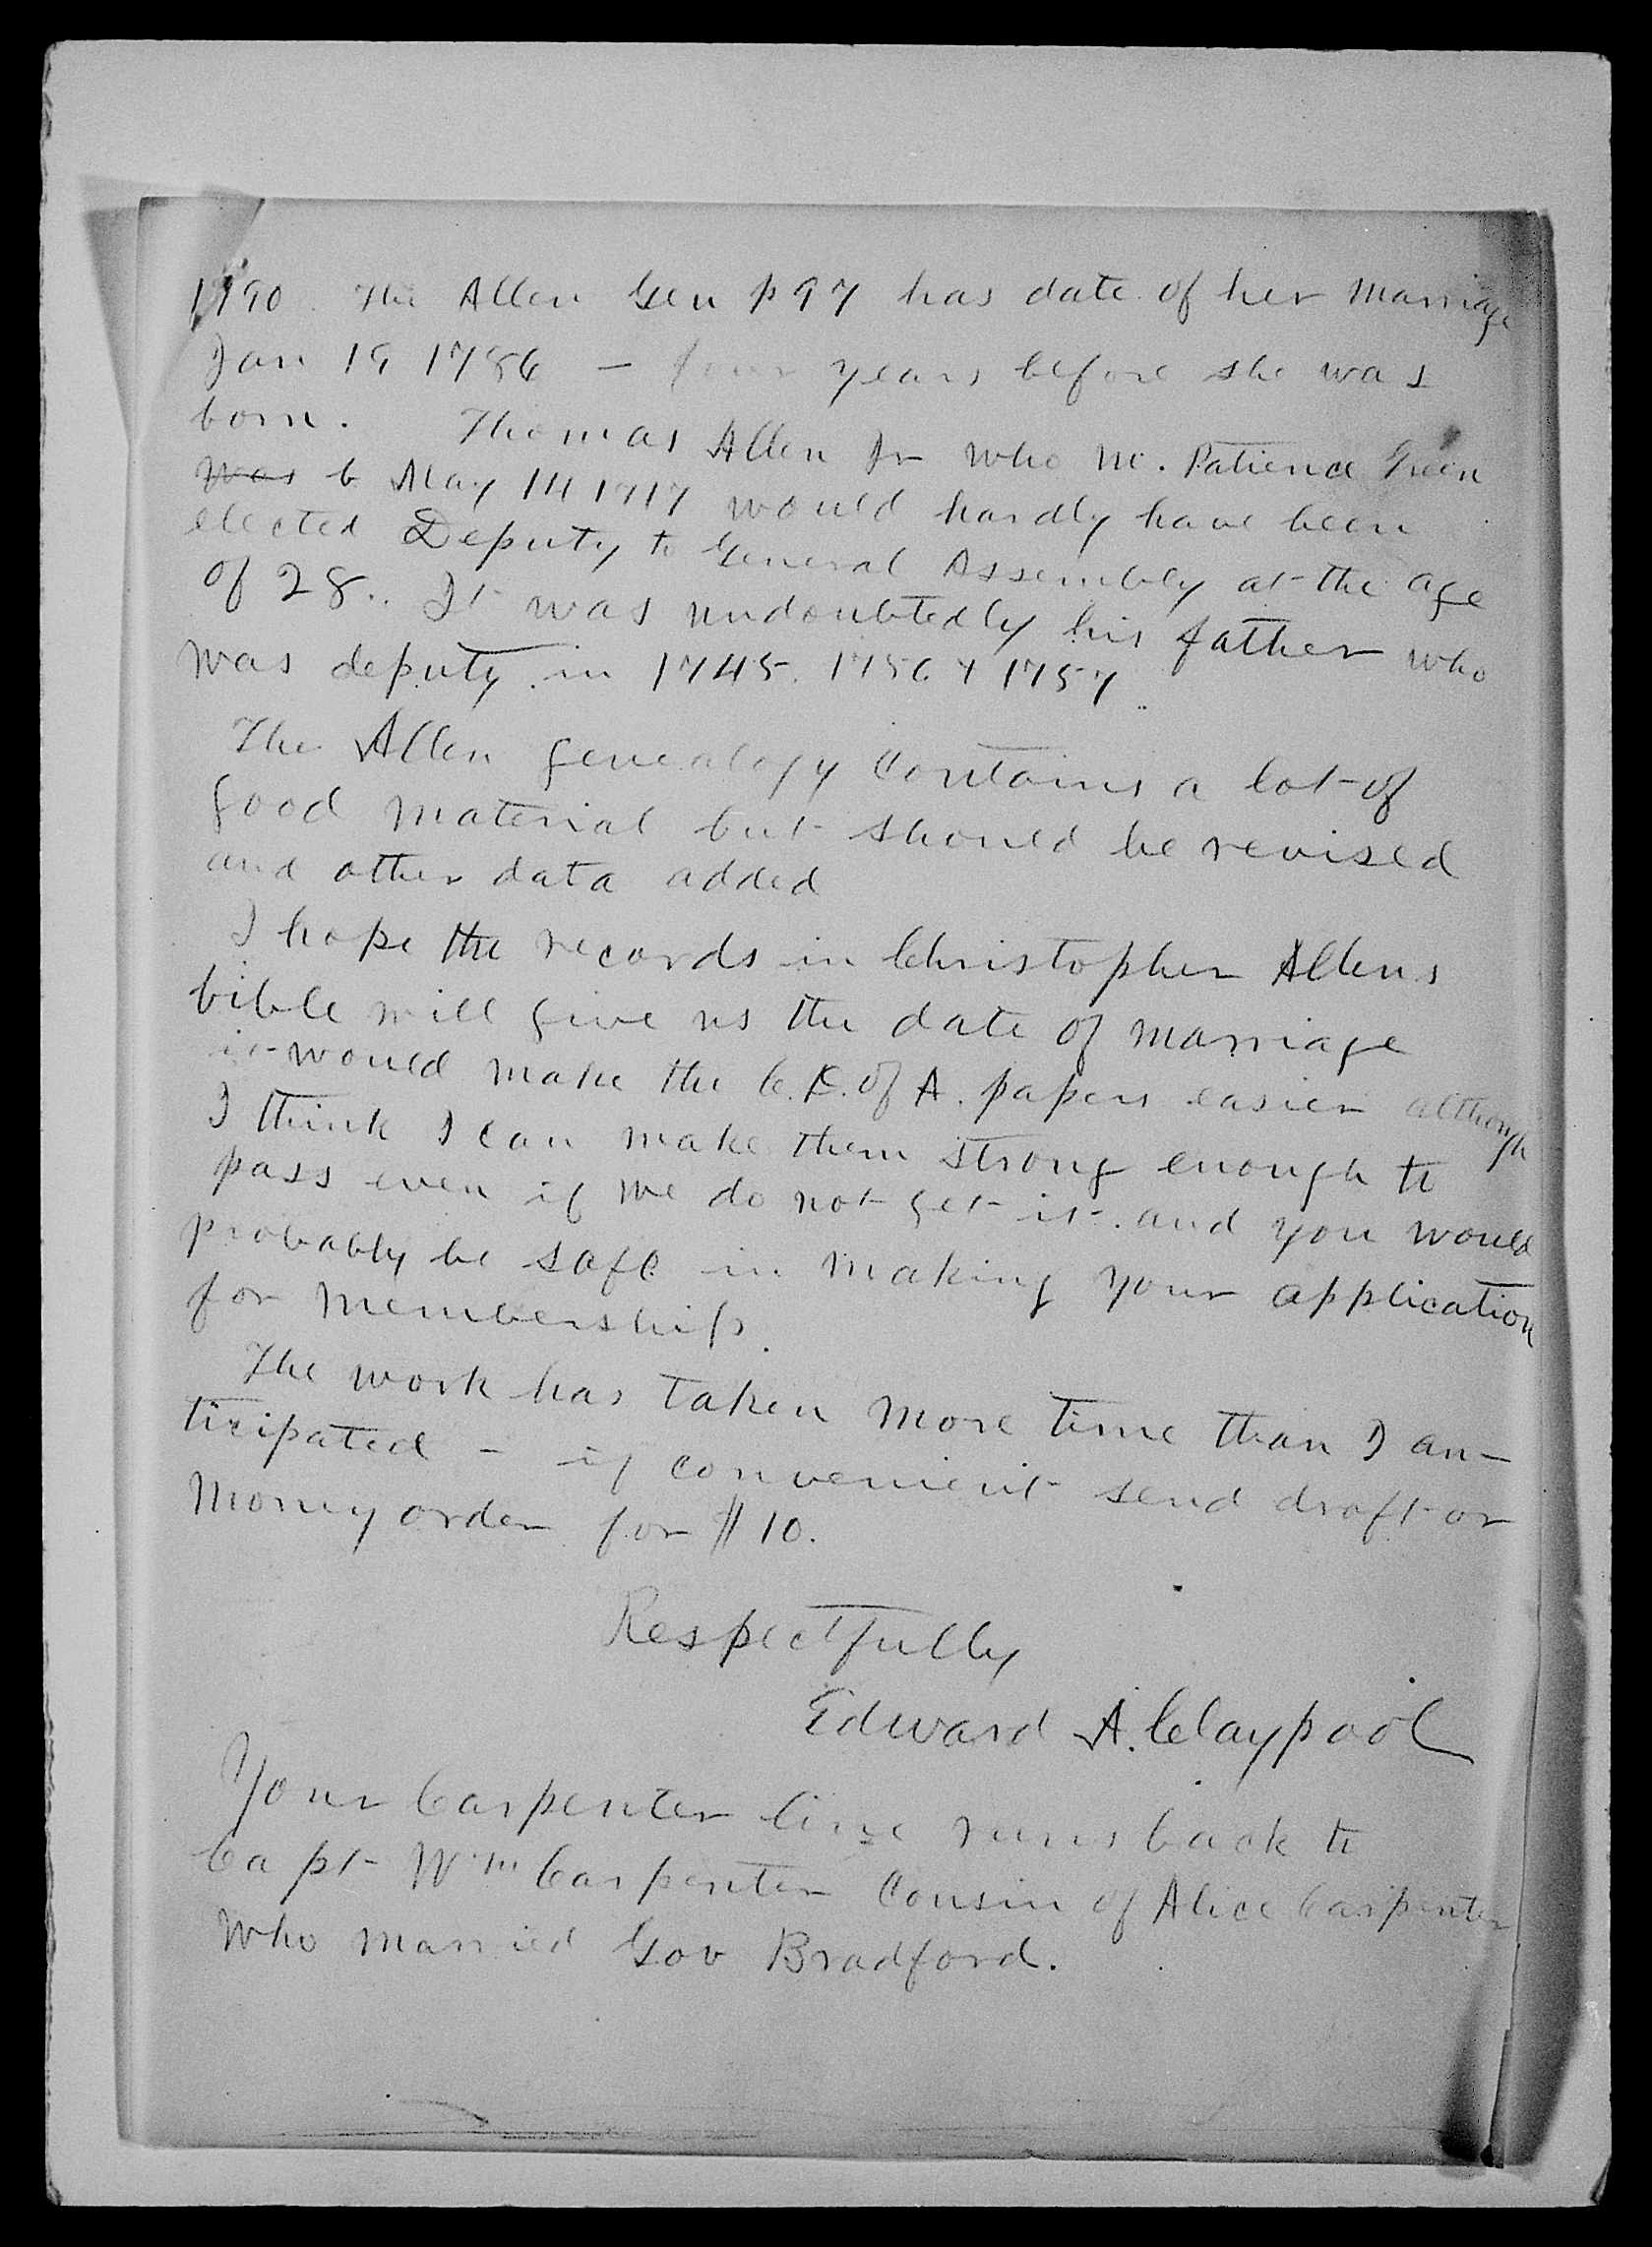 1790. The Allen Gen p 97 has date of her marriage
Jan 19 1786 — four years before she was
born. Thomas Allen Jr who m. Patience Green
was b May 14 1717 would hardly have been
elected Deputy to General Assembly at the age
of 28.. It was undoubtedly his father who
was deputy in 1745. 1756 & 1757
The Allen genealogy contains a lot of
good material but should be revised
and other data added
I hope the records in Christopher Allens
bible will give us the date of marriage
it would make the C. K. of A. papers easier although
I think I can make them strong enough to
pass even if we do not get it. and you would
probably be safe in making your application
for membership.
The work has taken more time than I an-
ticipated - if convenient send draft or
money order for $10.
Respectfully
Edward A. Claypool
Your Carpenter line runs back to
Capt Wm Carpenter Cousin of Alice Carpenter
who married Gov Bradford.